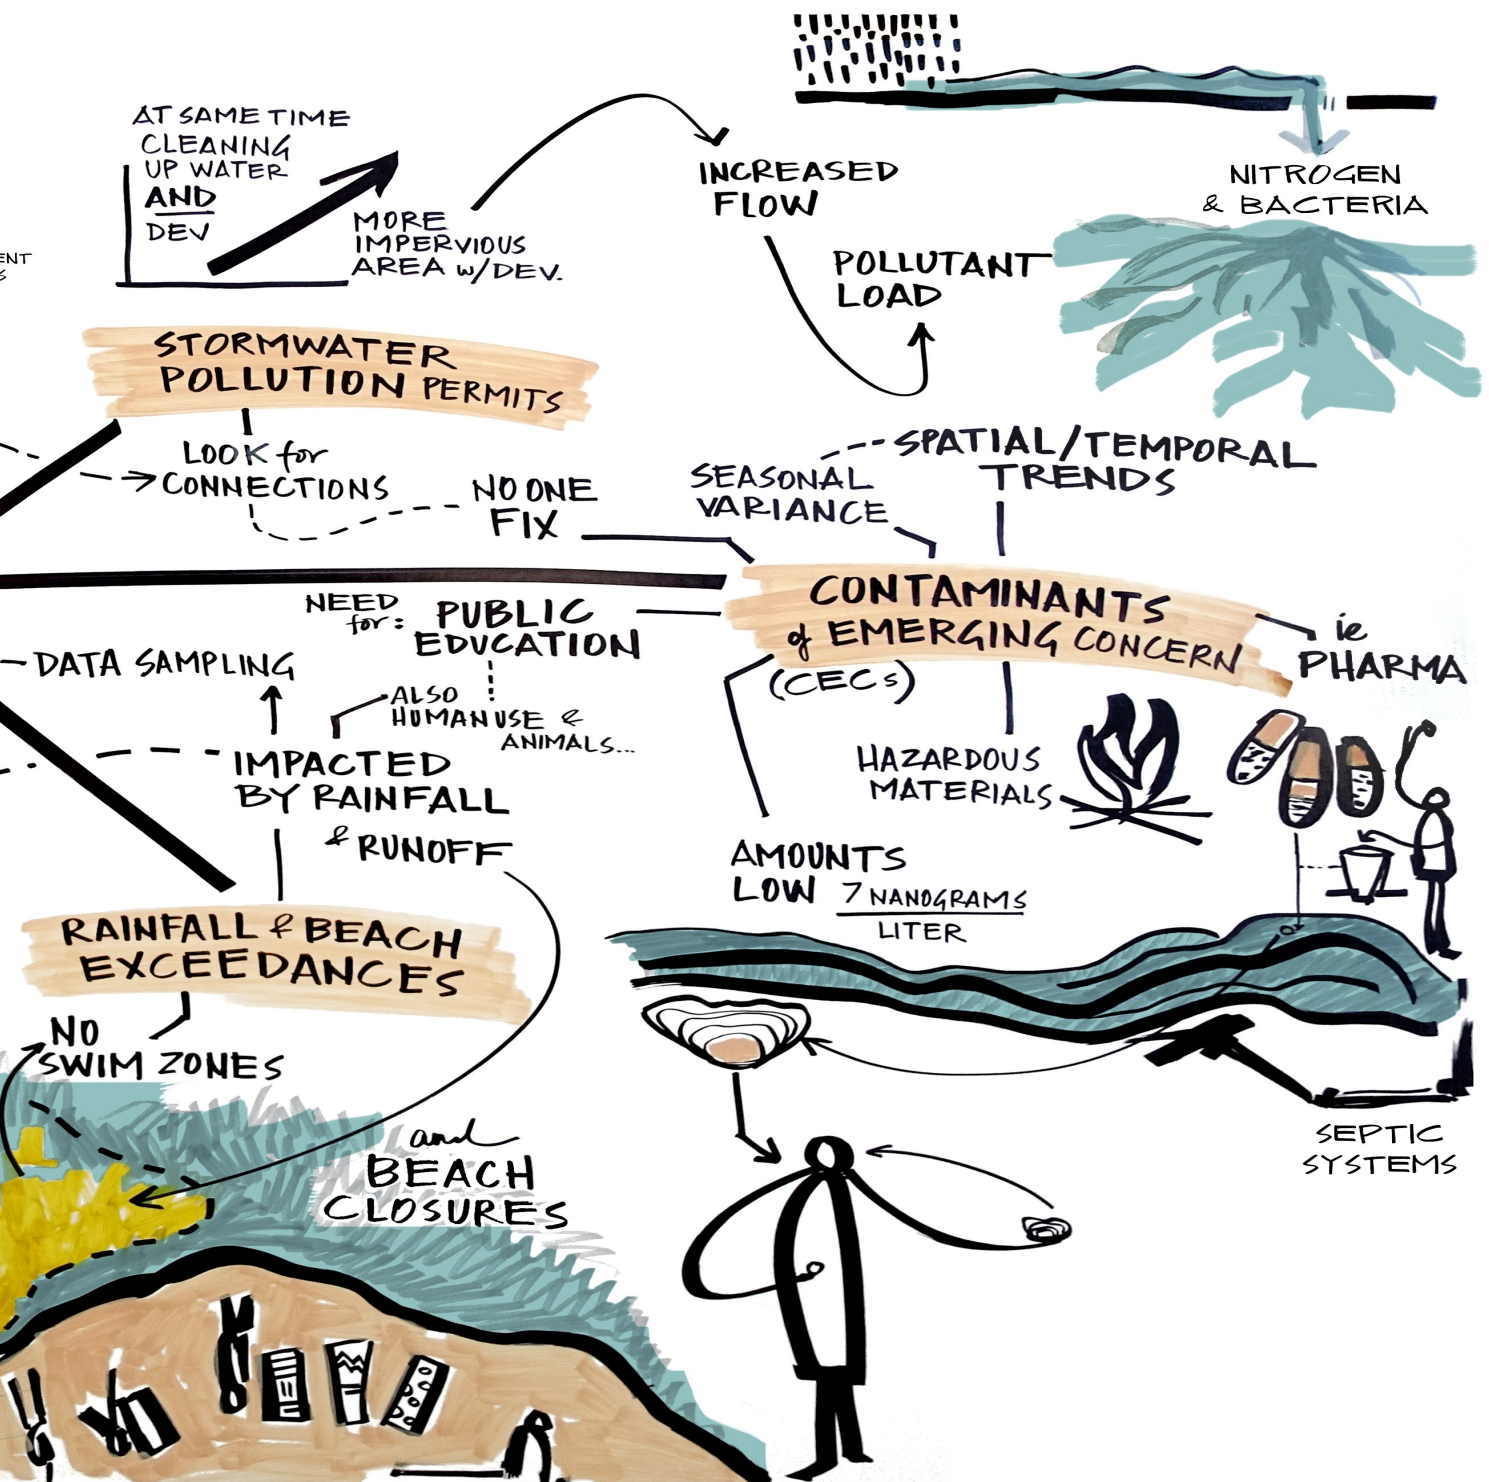 AT SAME TIME
CLEANING
UP WATER
AND
DEV
MORE
IMPERVIOUS
AREA w/DEV.
INCREASED
FLOW
POLLUTANT
LOAD
NITROGEN
& BACTERIA
ENT
S
STORMWATER
POLLUTION PERMITS
LOOK for
CONNECTIONS
NO ONE
FIX
SEASONAL
VARIANCE
SPATIAL/TEMPORAL
TRENDS
CONTAMINANTS
of EMERGING CONCERN
(CECs)
ie
PHARMA
NEED
for:
PUBLIC
EDUCATION
DATA SAMPLING
ALSO
HUMAN USE &
ANIMALS...
IMPACTED
BY RAINFALL
& RUNOFF
HAZARDOUS
MATERIALS
AMOUNTS
LOW 7 NANOGRAMS
LITER
RAINFALL & BEACH
EXCEEDANCES
NO
SWIM ZONES
and
BEACH
CLOSURES
SEPTIC
SYSTEMS